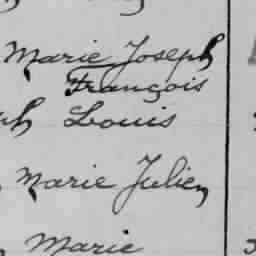 Marie Joseph
François
ph Louis
Marie Julien
Marie